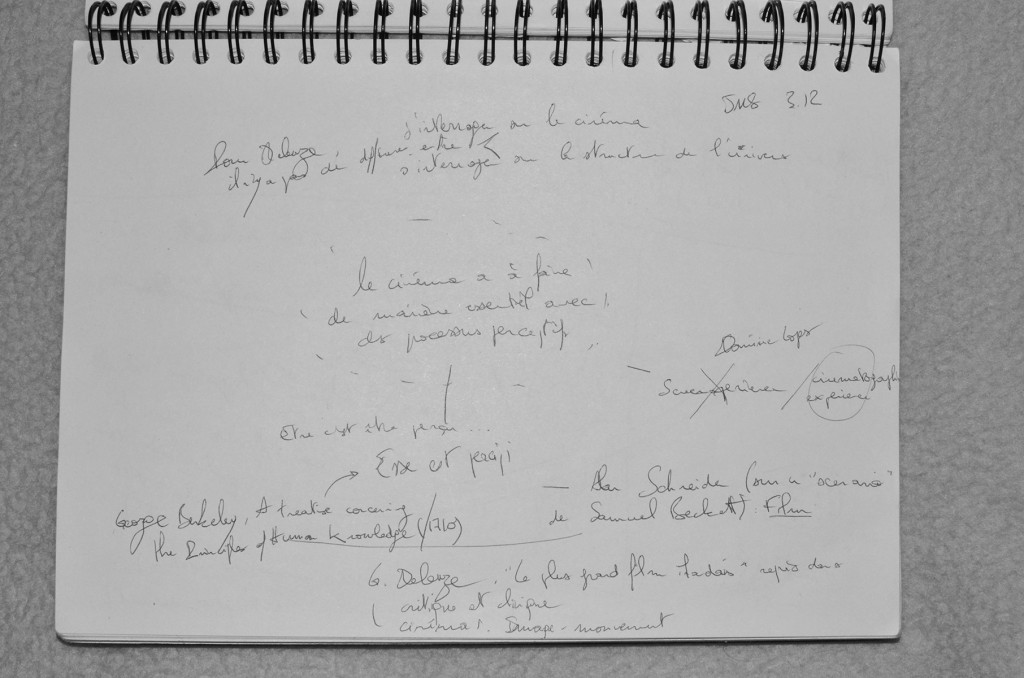 3.12
s'interroger sur le cinéma
Pour Deleuze,
il n'y a pas de différence entre
s'interroger sur la structure de l'univers
le cinéma a à faire
de manière essentiel avec
des processus perceptifs
Dominic Lopes
cinematographic
experience
Etre c'est être perçu ...
Esse est percipi
Alan Schneider (sur un "scenario"
de Samuel Beckett) : Film
George Berkeley, A treatise concerning
the Principles of Human Knowledge (1710)
G. Deleuze, "Le plus grand film irlandais" repris dans
critique et clinique
cinéma 1. Image-mouvement